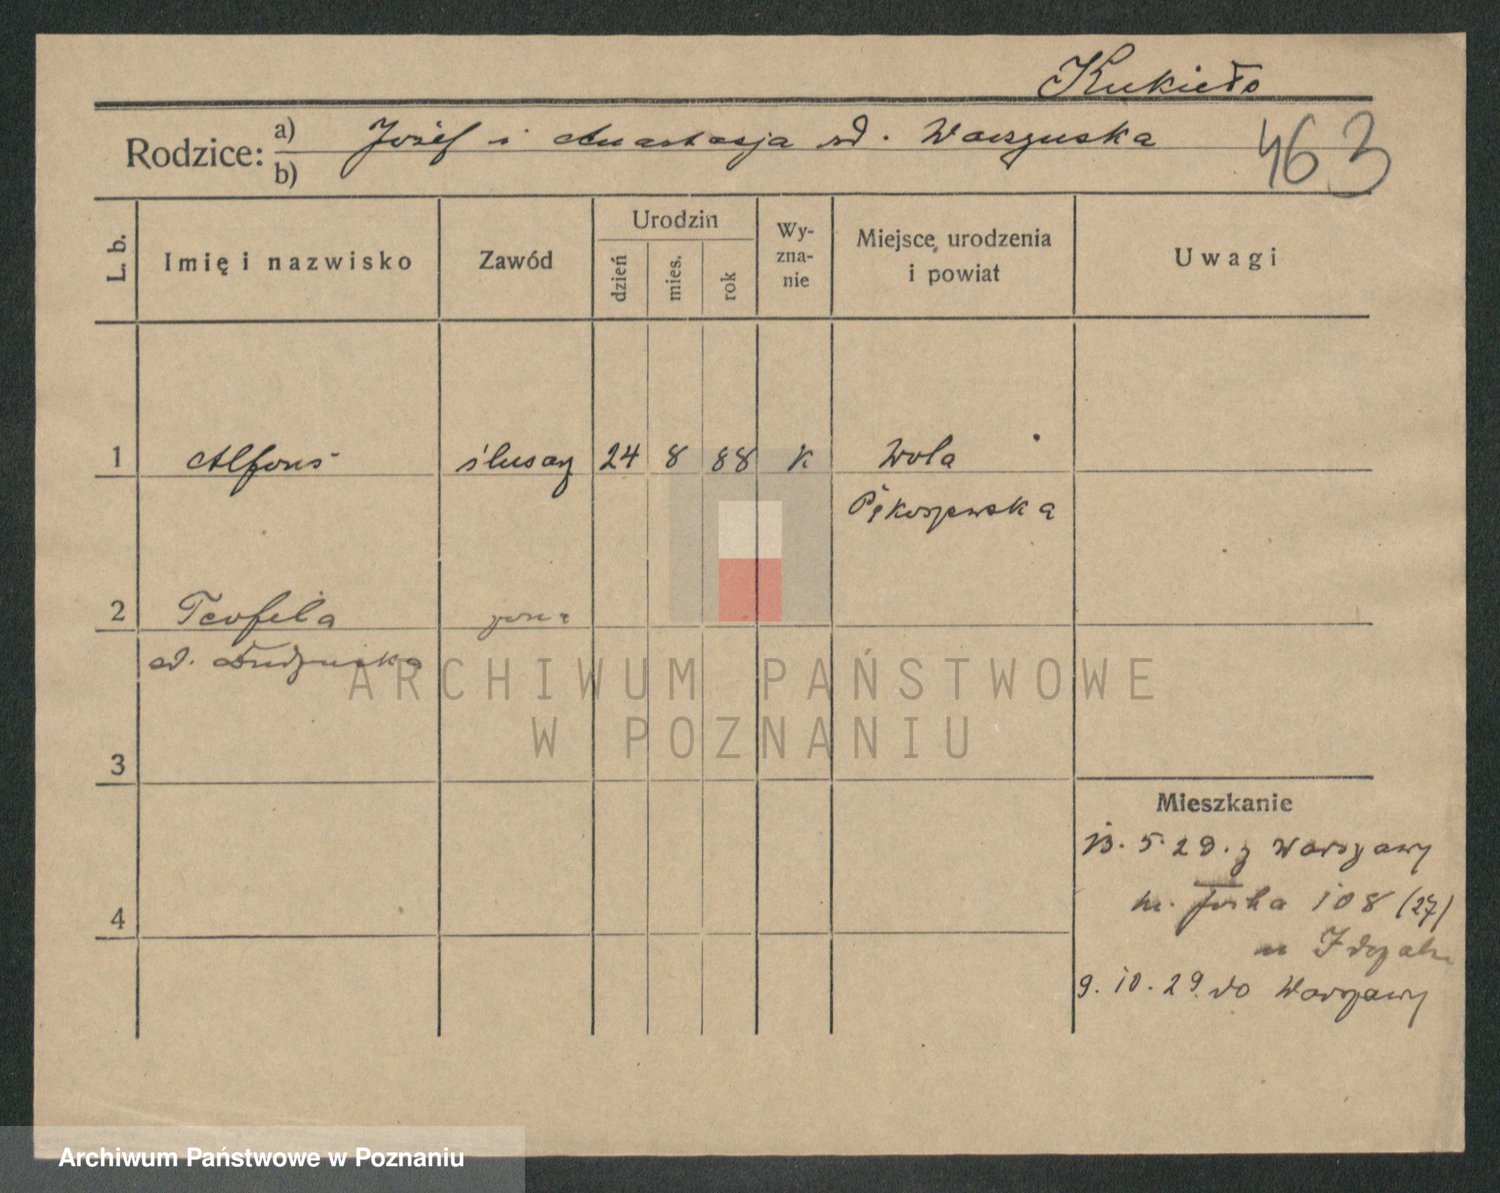 Kukieło
Rodzice: a) Józef i Anastasja rd. Warszuska
b)
463
L. b.
Imię i nazwisko
Zawód
Urodzin
dzień
mies.
rok
Wy-
zna-
nie
Miejsce urodzenia
i powiat
Uwagi
1 Alfons ślusarz 24 8 88 k Wola
Pękoszewska
2 Teofila żona
3
4
Mieszkanie
13.5.29. z Warszawy
108 (27)
9.10.29. do Warszawy
ARCHIWUM PAŃSTWOWE
W POZNANIU
Archiwum Państwowe w Poznaniu